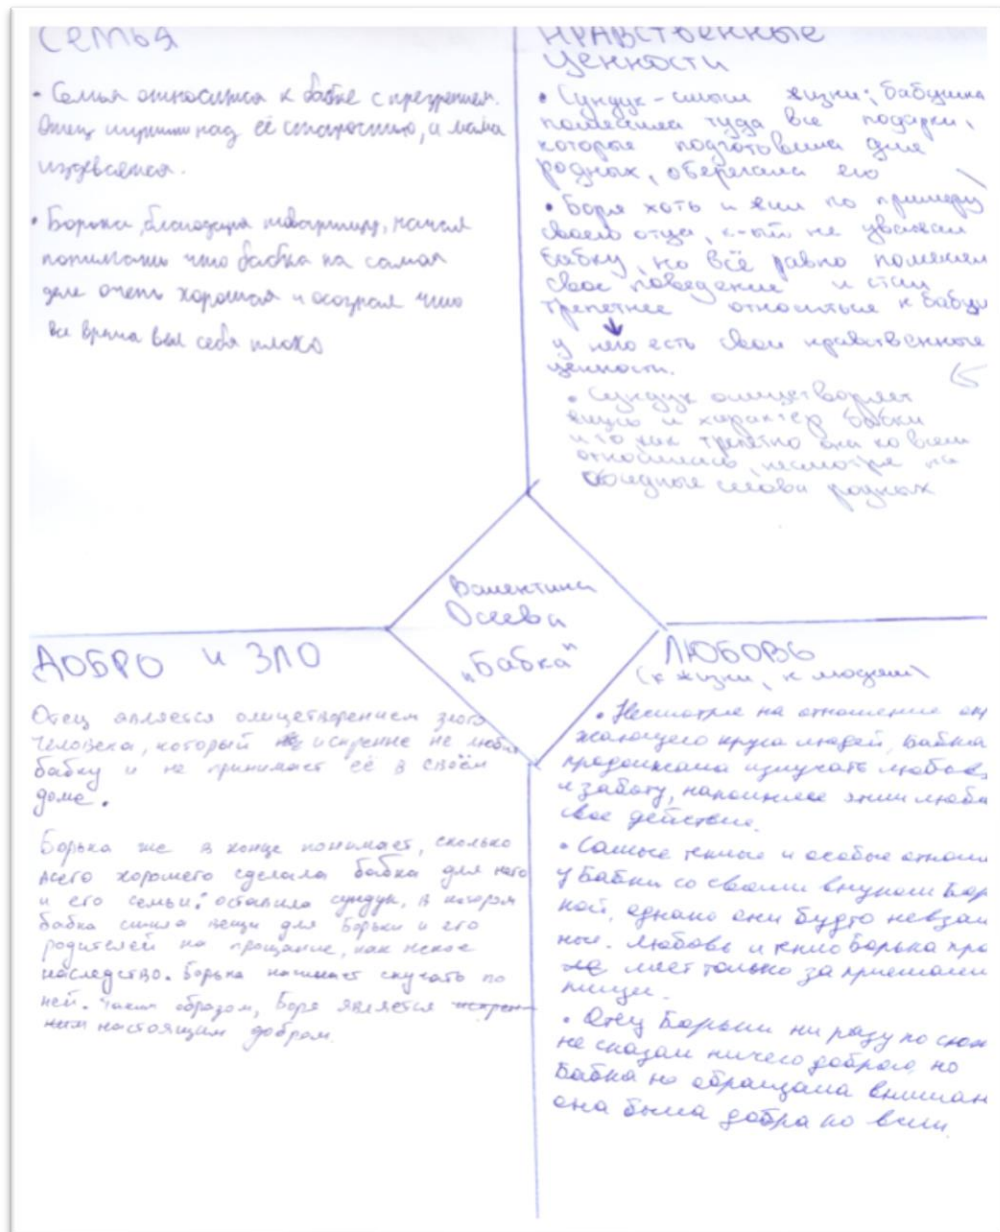 СЕМЬЯ
• Семья относится к бабке с презрением.
Отец над её старостью, а мама
издевается.
• Борька, благодаря товарищу, начал
понимать что бабка на самая
деле очень хорошая и осознал что
все время вел себя плохо
НРАВСТВЕННЫЕ
ЦЕННОСТИ
• Сундук - смысл жизни; бабушка
поместила туда все подарки,
которые подготовила для
родных, оберегала его
• Боря хоть и жил по примеру
своего отца, к-ый не уважал
бабку, но всё равно поменял
свое поведение и стал
трепетнее относиться к бабу
у него есть свои нравственные
ценности.
• Сундук олицетворяет
жизнь и характер бабки
и то как трепетно она ко всем
относилась, несмотря на
обидные слова родных
Валентина
Осеева
"Бабка"
ДОБРО и ЗЛО
Отец является олицетворением злого
человека, который искренне не любит
бабку и не принимает её в своём
доме.
Борька же в конце понимает, сколько
всего хорошего сделала бабка для него
и его семьи: оставила сундук, в котором
бабка сшила вещи для Борьки и его
родителей на прощание, как некое
наследство. Борька начинает скучать по
ней. Таким образом, Боря является искрен-
ним настоящим добром.
ЛЮБОВЬ
(к жизни, к людям)
• Несмотря на отношение ок
жающего круга людей, Бабка
продолжала излучать любовь
и заботу, наполняя этим любо
свое действие.
• Самые теплые и особые отнош
у Бабки со своим внуком Бор
кой, однако они будто невзаи
ные. Любовь к ней Борька про
ляет только за приемами
пищи.
• Отец Борьки ни разу по сюж
не сказал ничего доброго, но
Бабка не обращала вниман
она была добра ко всем.